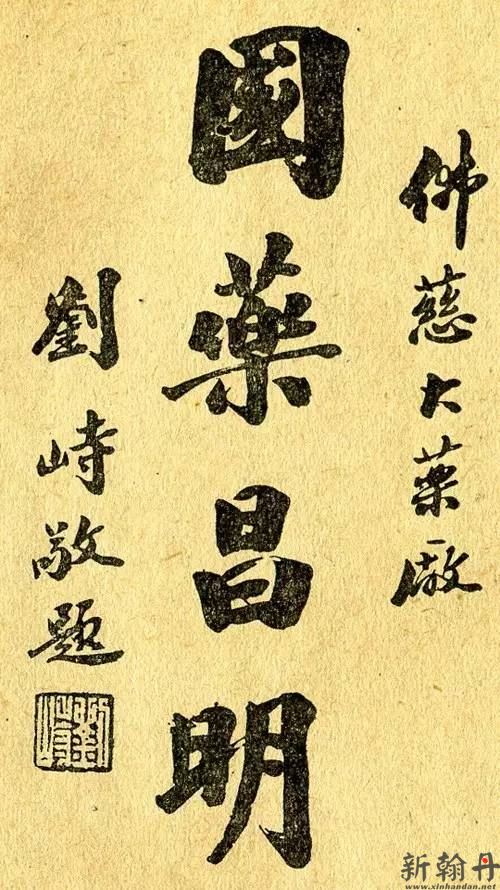 佛慈大藥廠
國藥昌明
劉峙敬題
新翰丹
www.xinhandan.net